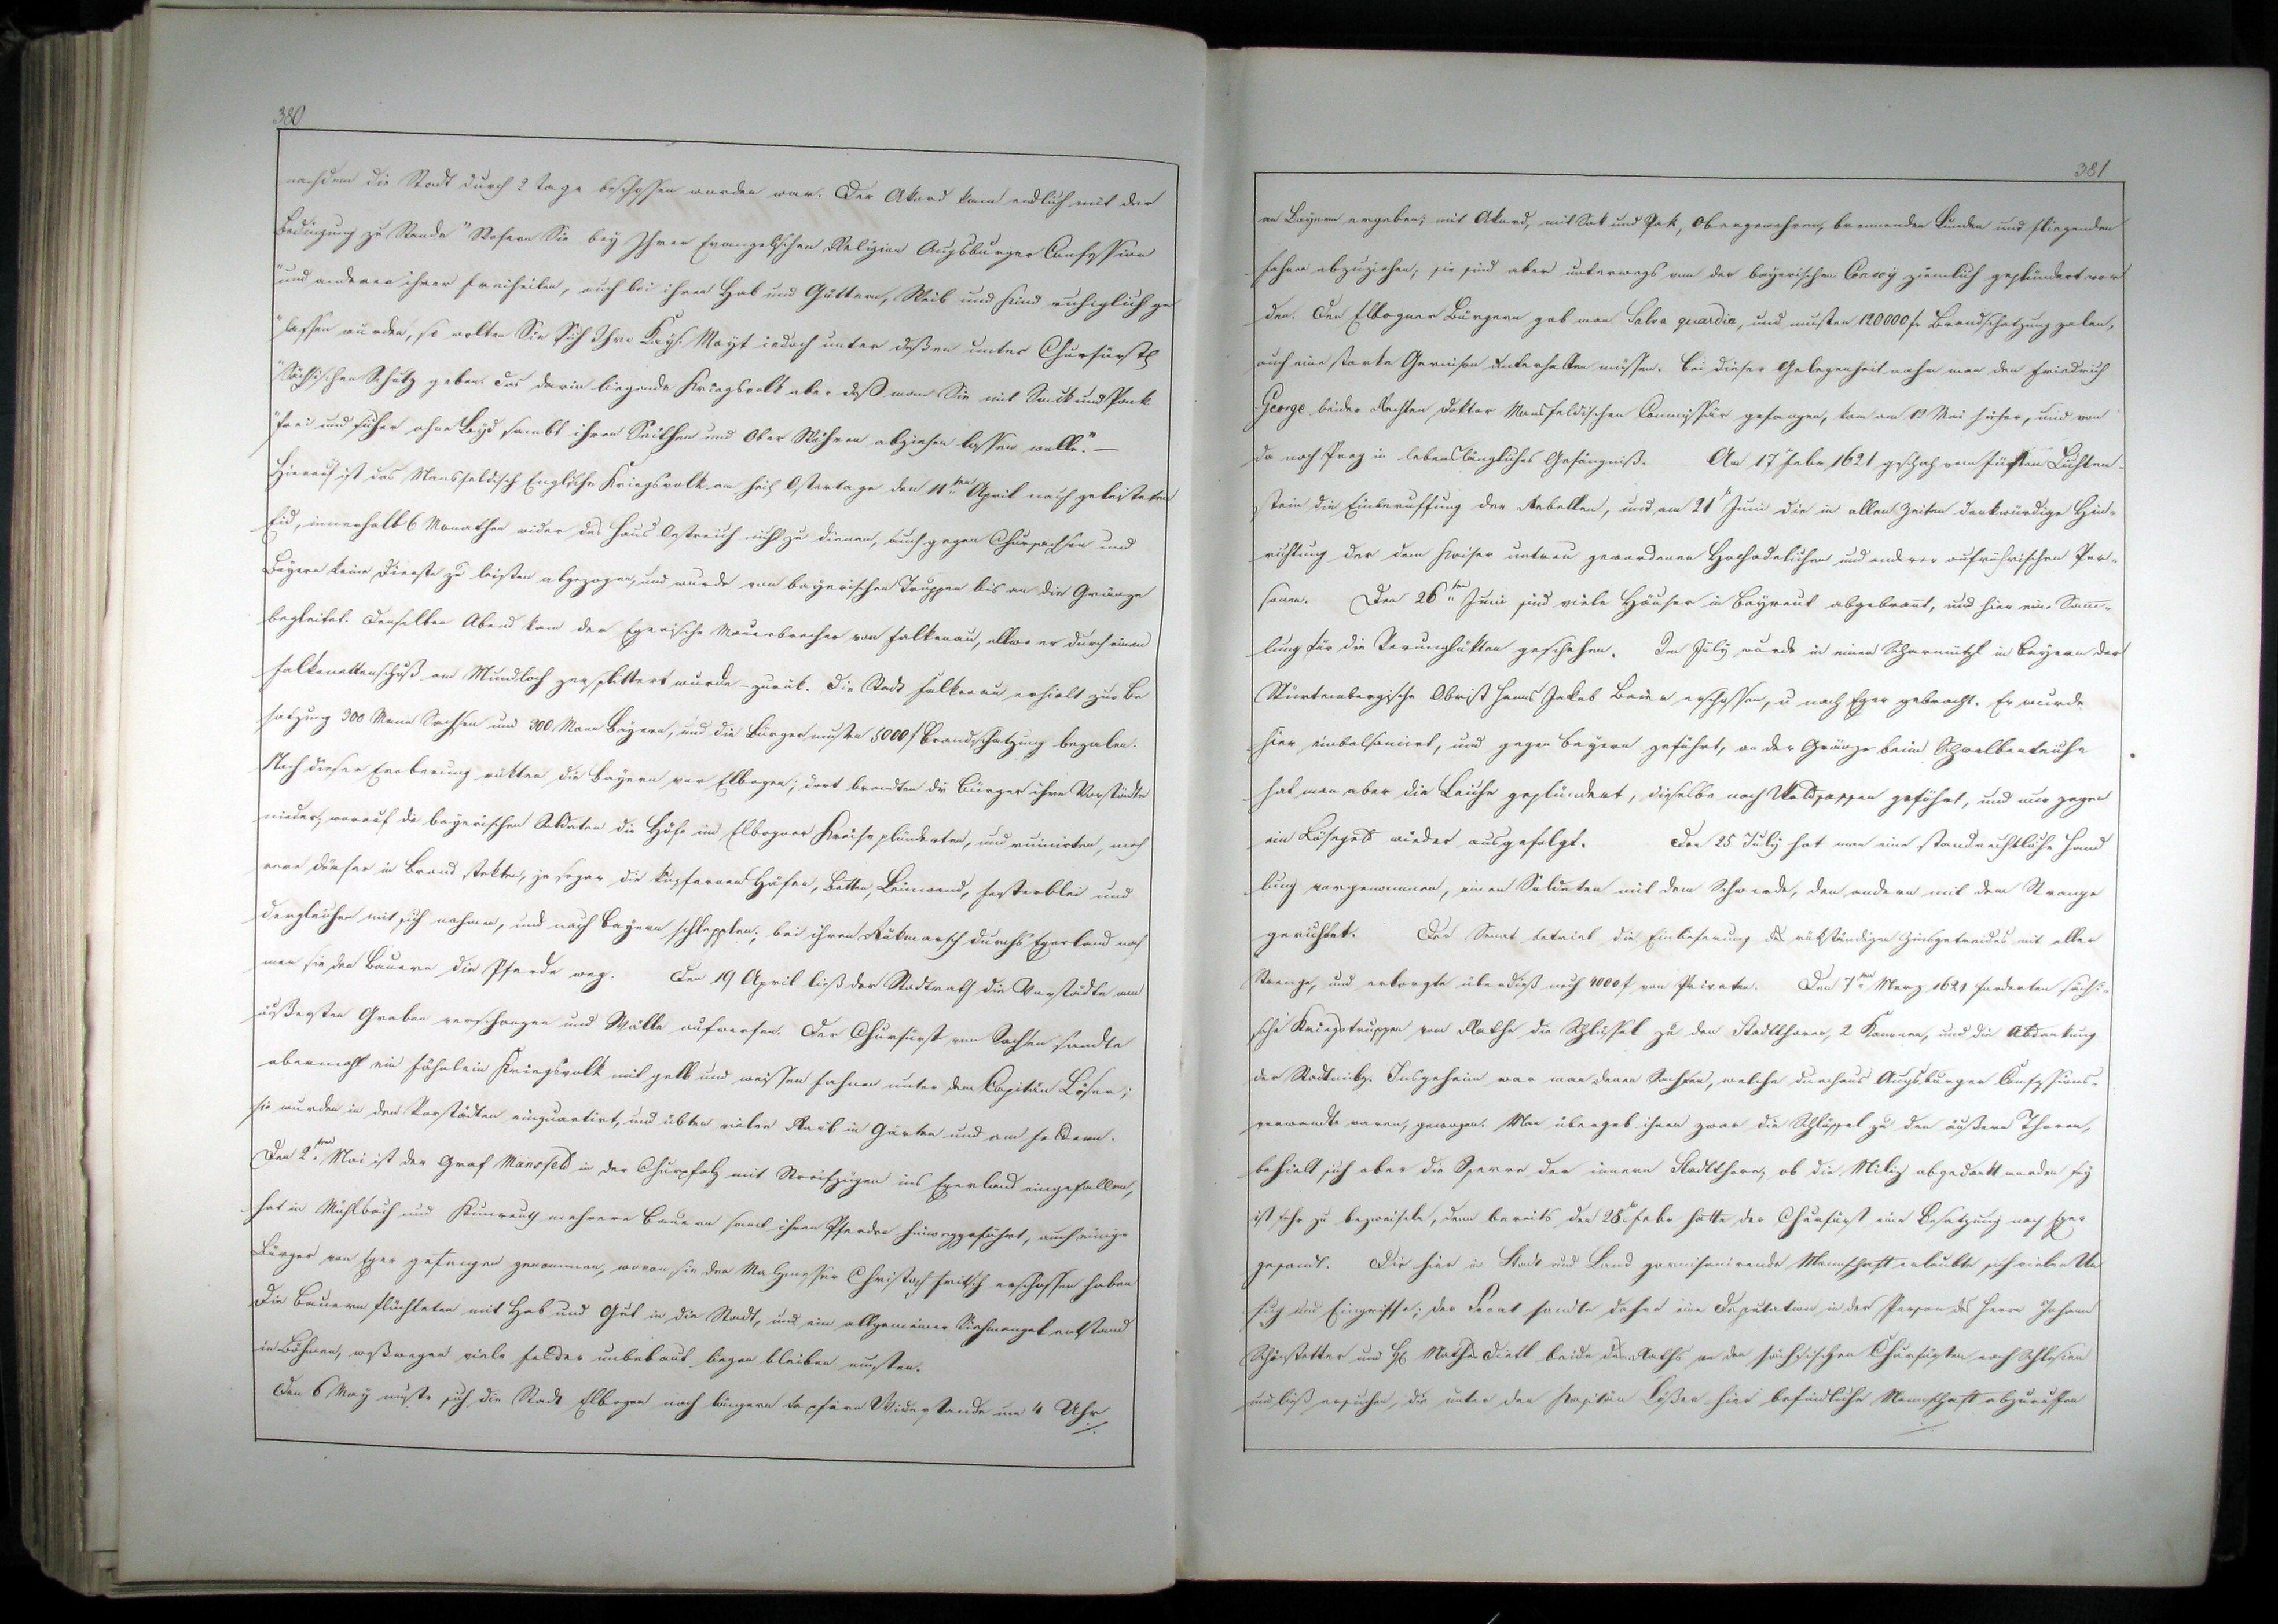 380
nachdem die Stadt durch 2 Tage beschossen worden war. Der Akord kam endlich mit der
Bedingung zu Stande "Wofern Sie bey Ihrer Evangelischen Religion Augsburger Confession
"und anderen ihrer Freiheiten, auch bei ihren Hab und Güttern, Weib und Kind ruhiglich ge
"lassen würden, so wolten Sie Sich Ihro Kays. Mayt jedoch unter dessen unter Churfürstl
"Sächsischen Schutz geben das darin liegende Kriegsvolk aber daß man Sie mit Sack und Pack
"frei und sicher ohne Leyd sambt ihren Seithen und Ober Wöhren abziehen lassen wolle." —
Hierauf ist das Mansfeldisch Englische Kriegsvolk am heil Ostertage den 11ten April nach geleisteten
Eid, innerhalb 6 Monathen wider das Haus Oestreich nicht zu dienen, auch gegen Chursachsen und
Bayern keine Dienste zu leisten abgezogen, und wurde von bayerischen Truppen bis an die Gränze
begleitet. Denselben Abend kam der Egerische Mauerbrecher von Falkenau, allwo er durch einen
Falkonettenschuß am Mundloch zersplittert wurde – zurük. Die Stadt Falkenau erhielt zur Be
satzung 300 Mann Sachsen und 300 Mann Bayern, und die Bürger musten 5000 f Brandschatzung bezalen.
Nach dieser Eroberung rükten die Bayern vor Elbogen; dort brandten die Bürger ihre Vorstädte
nieder, worauf die bayerischen Soldaten die Höfe im Elbogner Kreise plünderten, und ruinirten, meh
rere Dörfer in Brand stekten, ja sogar die kupfernen Häfen, Betten, Leinwand, Fensterblei und
dergleichen mit sich nahmen, und nach Bayern schleppten; bei ihren Rükmarsch durchs Egerland nah
men sie den Bauern die Pferde weg. Den 19 April ließ der Stadtrath die Vorstädte am
äußersten Graben verschanzen und Wälle aufwerfen. Der Churfürst von Sachsen sandte
abermahl ein Fähnlein Kriegsvolk mit gelb und weissen Fahnen unter dem Capitän Löser;
sie wurden in den Vorstädten einquartirt, und übten vielen Raub in Gärten und am Feldern.
Den 2ten Mai ist der Graf Mansfeld in der Churpfalz mit Streifzügen ins Egerland eingefallen,
hat in Mühlbach und Kunreuth mehrere Bauern samt ihren Pferden hinweggeführt, auch einige
Bürger von Eger gefangen genommen, wovon sie den Malzmesser Christoph Fritsch erschossen haben
Die Bauern flüchteten mit Hab und Gut in die Stadt, und ein allgemeiner Viehmangel entstand
in Böhmen, weßwegen viele Felder unbebaut liegen bleiben musten.
Den 6 May muste sich die Stadt Elbogen nach längern tapfern Widerstande um 4 Uhr
381
an Bayern ergeben; mit Akord, mit Sak und Pak, Obergewehren, brennenden Lunden und fliegenden
Fahnen abzuziehen; sie sind aber unterwegs von der bayerischen Convoy ziemlich geplündert wor
den. Den Elbogner Bürgern gab man Salva quardia, und musten 120000 fr Brandschatzung zalen,
auch eine starke Garnison unterhalten müssen. Bei dieser Gelegenheit nahm man den Friedrich
George beider Rechten Doktor Mansfeldischen Commissär gefangen, kam am 12 Mai hieher, und von
da nach Prag in lebenslängliches Gefängniß. Am 17 Febr 1621 geschah vom Fürsten Lichten-
stein die Einberuffung der Rebellen, und am 21 Juni die in allen Zeiten denkwürdige Hin-
richtung der dem Kaiser untreu gewordenen Hochadelichen und anderer aufrührischen Per-
sonen. Den 26ten Juni sind viele Häuser in Bayreut abgebrant, und hier eine Samm-
lung für die Verunglükten geschehen. Im July wurde in einem Scharmützl in Bayern der
Würtembergische Obrist Hanns Jakob Baier erschossen, u nach Eger gebracht. Er wurde
hier einbalsamirt, und gegen Bayern geführt, an der Gränze beim Schwalbenteuche
hat man aber die Leiche geplündert, dieselbe nach Waldsassen geführt, und nur gegen
ein Lösegeld wieder ausgefolgt. Den 25 July hat man eine standrechtliche Hand
lung vorgenommen, einen Soldaten mit dem Schwerde, den andern mit dem Strange
gerichtet. Der Senat betrieb die Einlieferung des rükständigen Zinsgetreides mit aller
Strenge, und erborgte überdieß noch 4000 f von Privaten. Den 7ten Merz 1621 forderten sächsi-
sche Kriegstruppen vom Rathe die Schlüssel zu den Stadtthoren, 2 Kanonen, und die Abdankung
der Stadtmiliz. Insgeheim war man denen Sachsen, welche durchaus Augsburger Confessions-
verwandte waren, gewogen. Man übergab ihnen zwar die Schlüssel zu den äußern Thoren,
behielt sich aber die Sperre der innern Stadtthore; ob die Miliz abgedankt worden sey
ist sehr zu bezweifeln, denn bereits den 28 Febr hatte der Churfürst eine Besatzung nach Eger
gesandt. Die hier in Stadt und Land garnisonirende Mannschaft erlaubte sich vielen Un
fug und Eingriffe; der Senat sandte daher eine Deputation in der Person des Herrn Johann
Schönstetter und H Mathes Dietl beide des Raths an den sächsischen Churfürsten nach Schlesien
und ließ ersuchen, die unter den Kapitän Lößer hier befindliche Mannschaft abzurufen